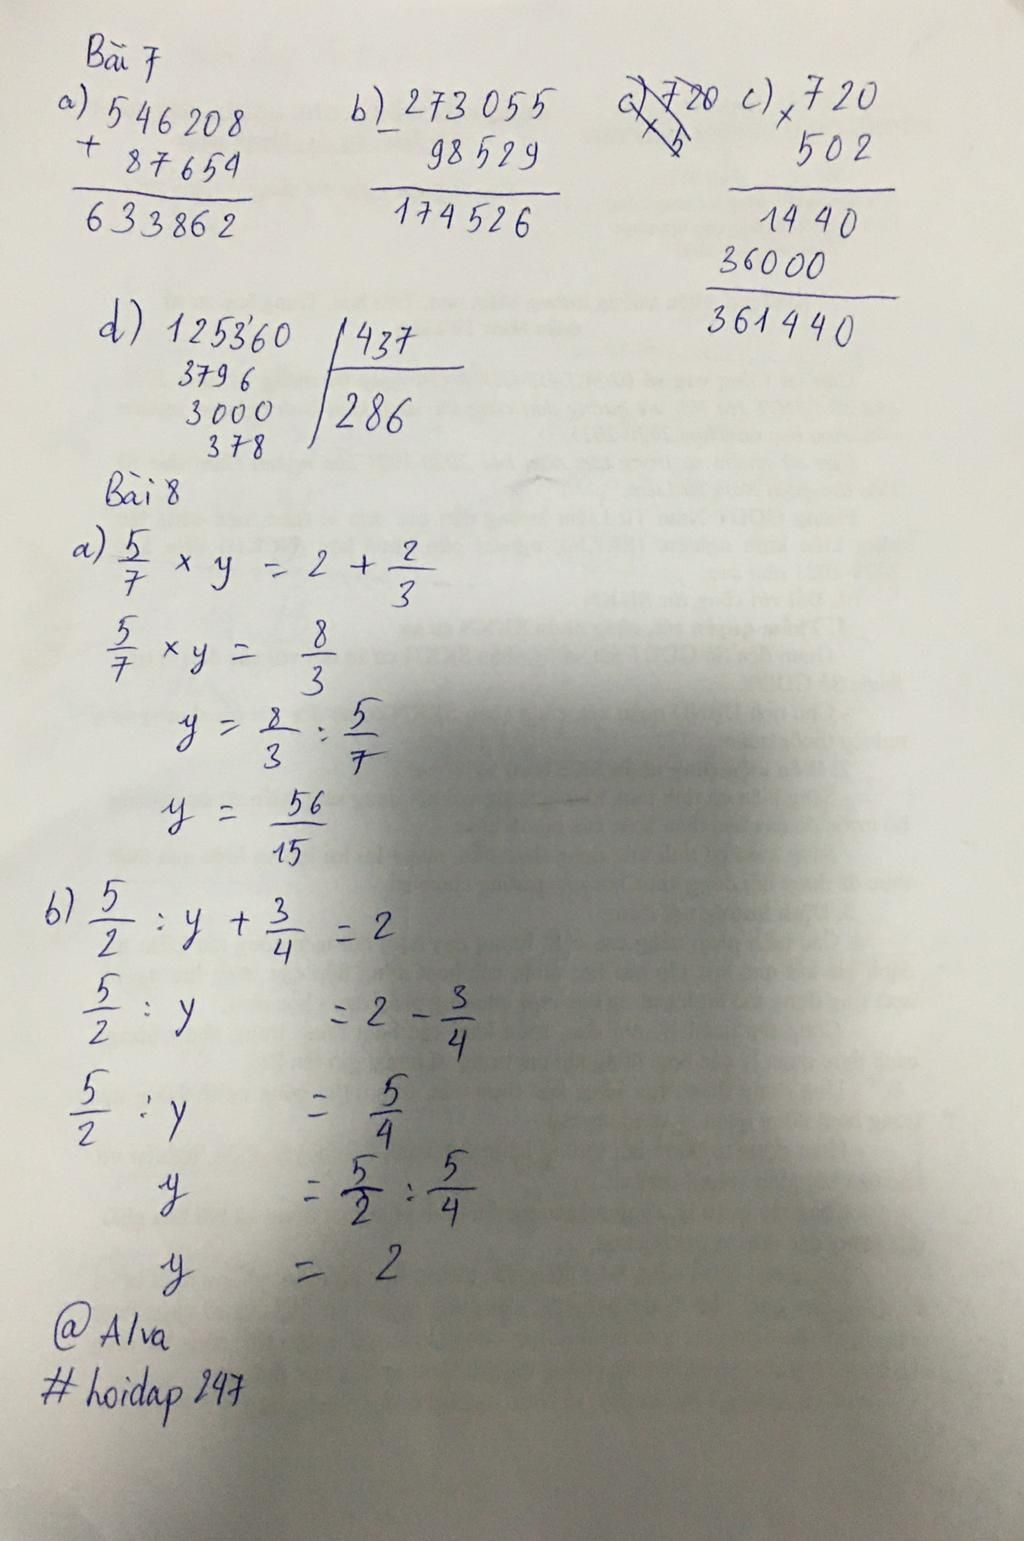 Bài 7
a) 546208
+ 87654
633862
b) - 273055
98529
174526
c) 720
× 5
c) × 720
502
1440
36000
361440
d) 125360 | 437
3796
3000 286
378
Bài 8
a) 5/7 × y = 2 + 2/3
5/7 × y = 8/3
y = 8/3 : 5/7
y = 56/15
b) 5/2 : y + 3/4 = 2
5/2 : y = 2 - 3/4
5/2 : y = 5/4
y = 5/2 : 5/4
y = 2
@ Alva
# hoidap 247